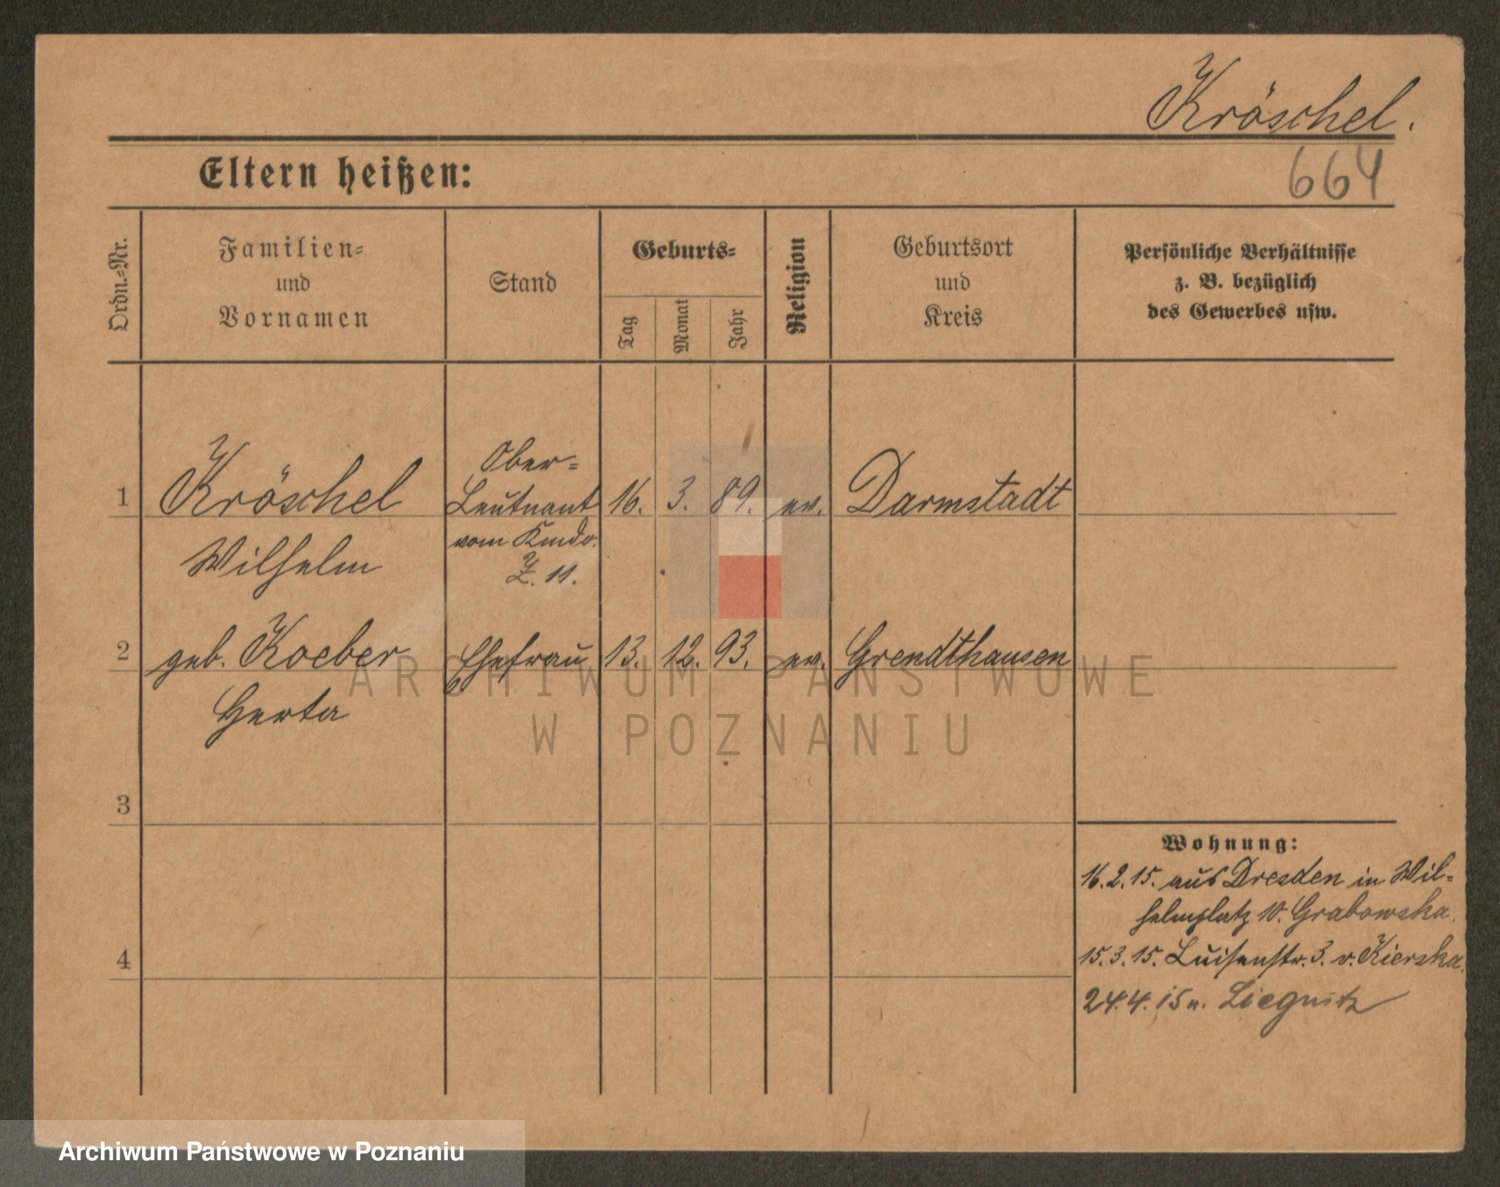 Kröschel.
Eltern heißen:
664
Ordn.-Nr.
Familien-
und
Vornamen
Stand
Geburts-
Tag
Monat
Jahr
Religion
Geburtsort
und
Kreis
Persönliche Verhältnisse
z. B. bezüglich
des Gewerbes usw.
1 Kröschel Ober-
Leutnant 16. 3. 89. ev. Darmstadt
Wilhelm vom Kmdo.
Z. 11.
2 geb. Koeber Ehefrau 13. 12. 93. ev. Grendthausen
Herta
ARCHIWUM PAŃSTWOWE
W POZNANIU
3
Wohnung:
16.2.15. aus Dresden in Wil-
helmplatz 10. Grabowska.
4
15.3.15. Luisenstr. 3. v. Kierska.
24.4.15 n. Liegnitz
Archiwum Państwowe w Poznaniu